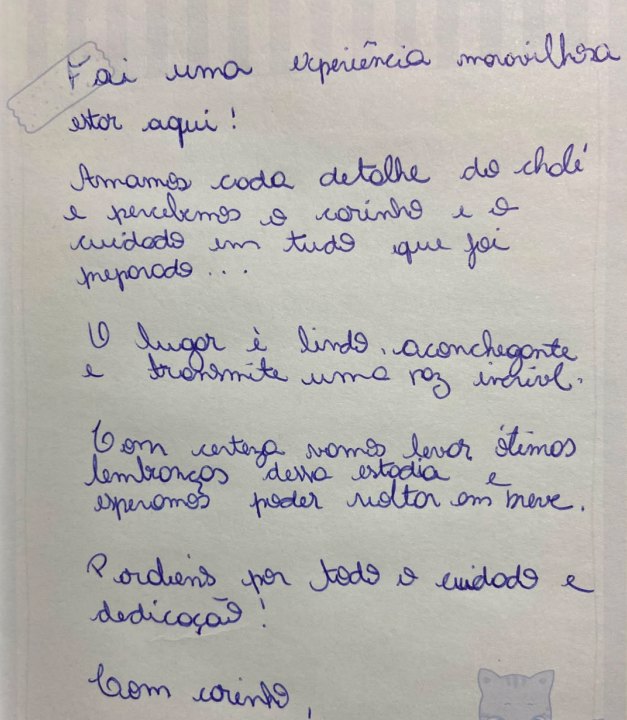 Foi uma experiência maravilhosa
estar aqui!
Amamos cada detalhe do chalé
e percebemos o carinho e o
cuidado em tudo que foi
preparado...
O lugar é lindo, aconchegante
e transmite uma paz incrível.
Com certeza vamos levar ótimas
lembranças dessa estadia e
esperamos poder voltar em breve.
Parabéns por todo o cuidado e
dedicação!
Com carinho,